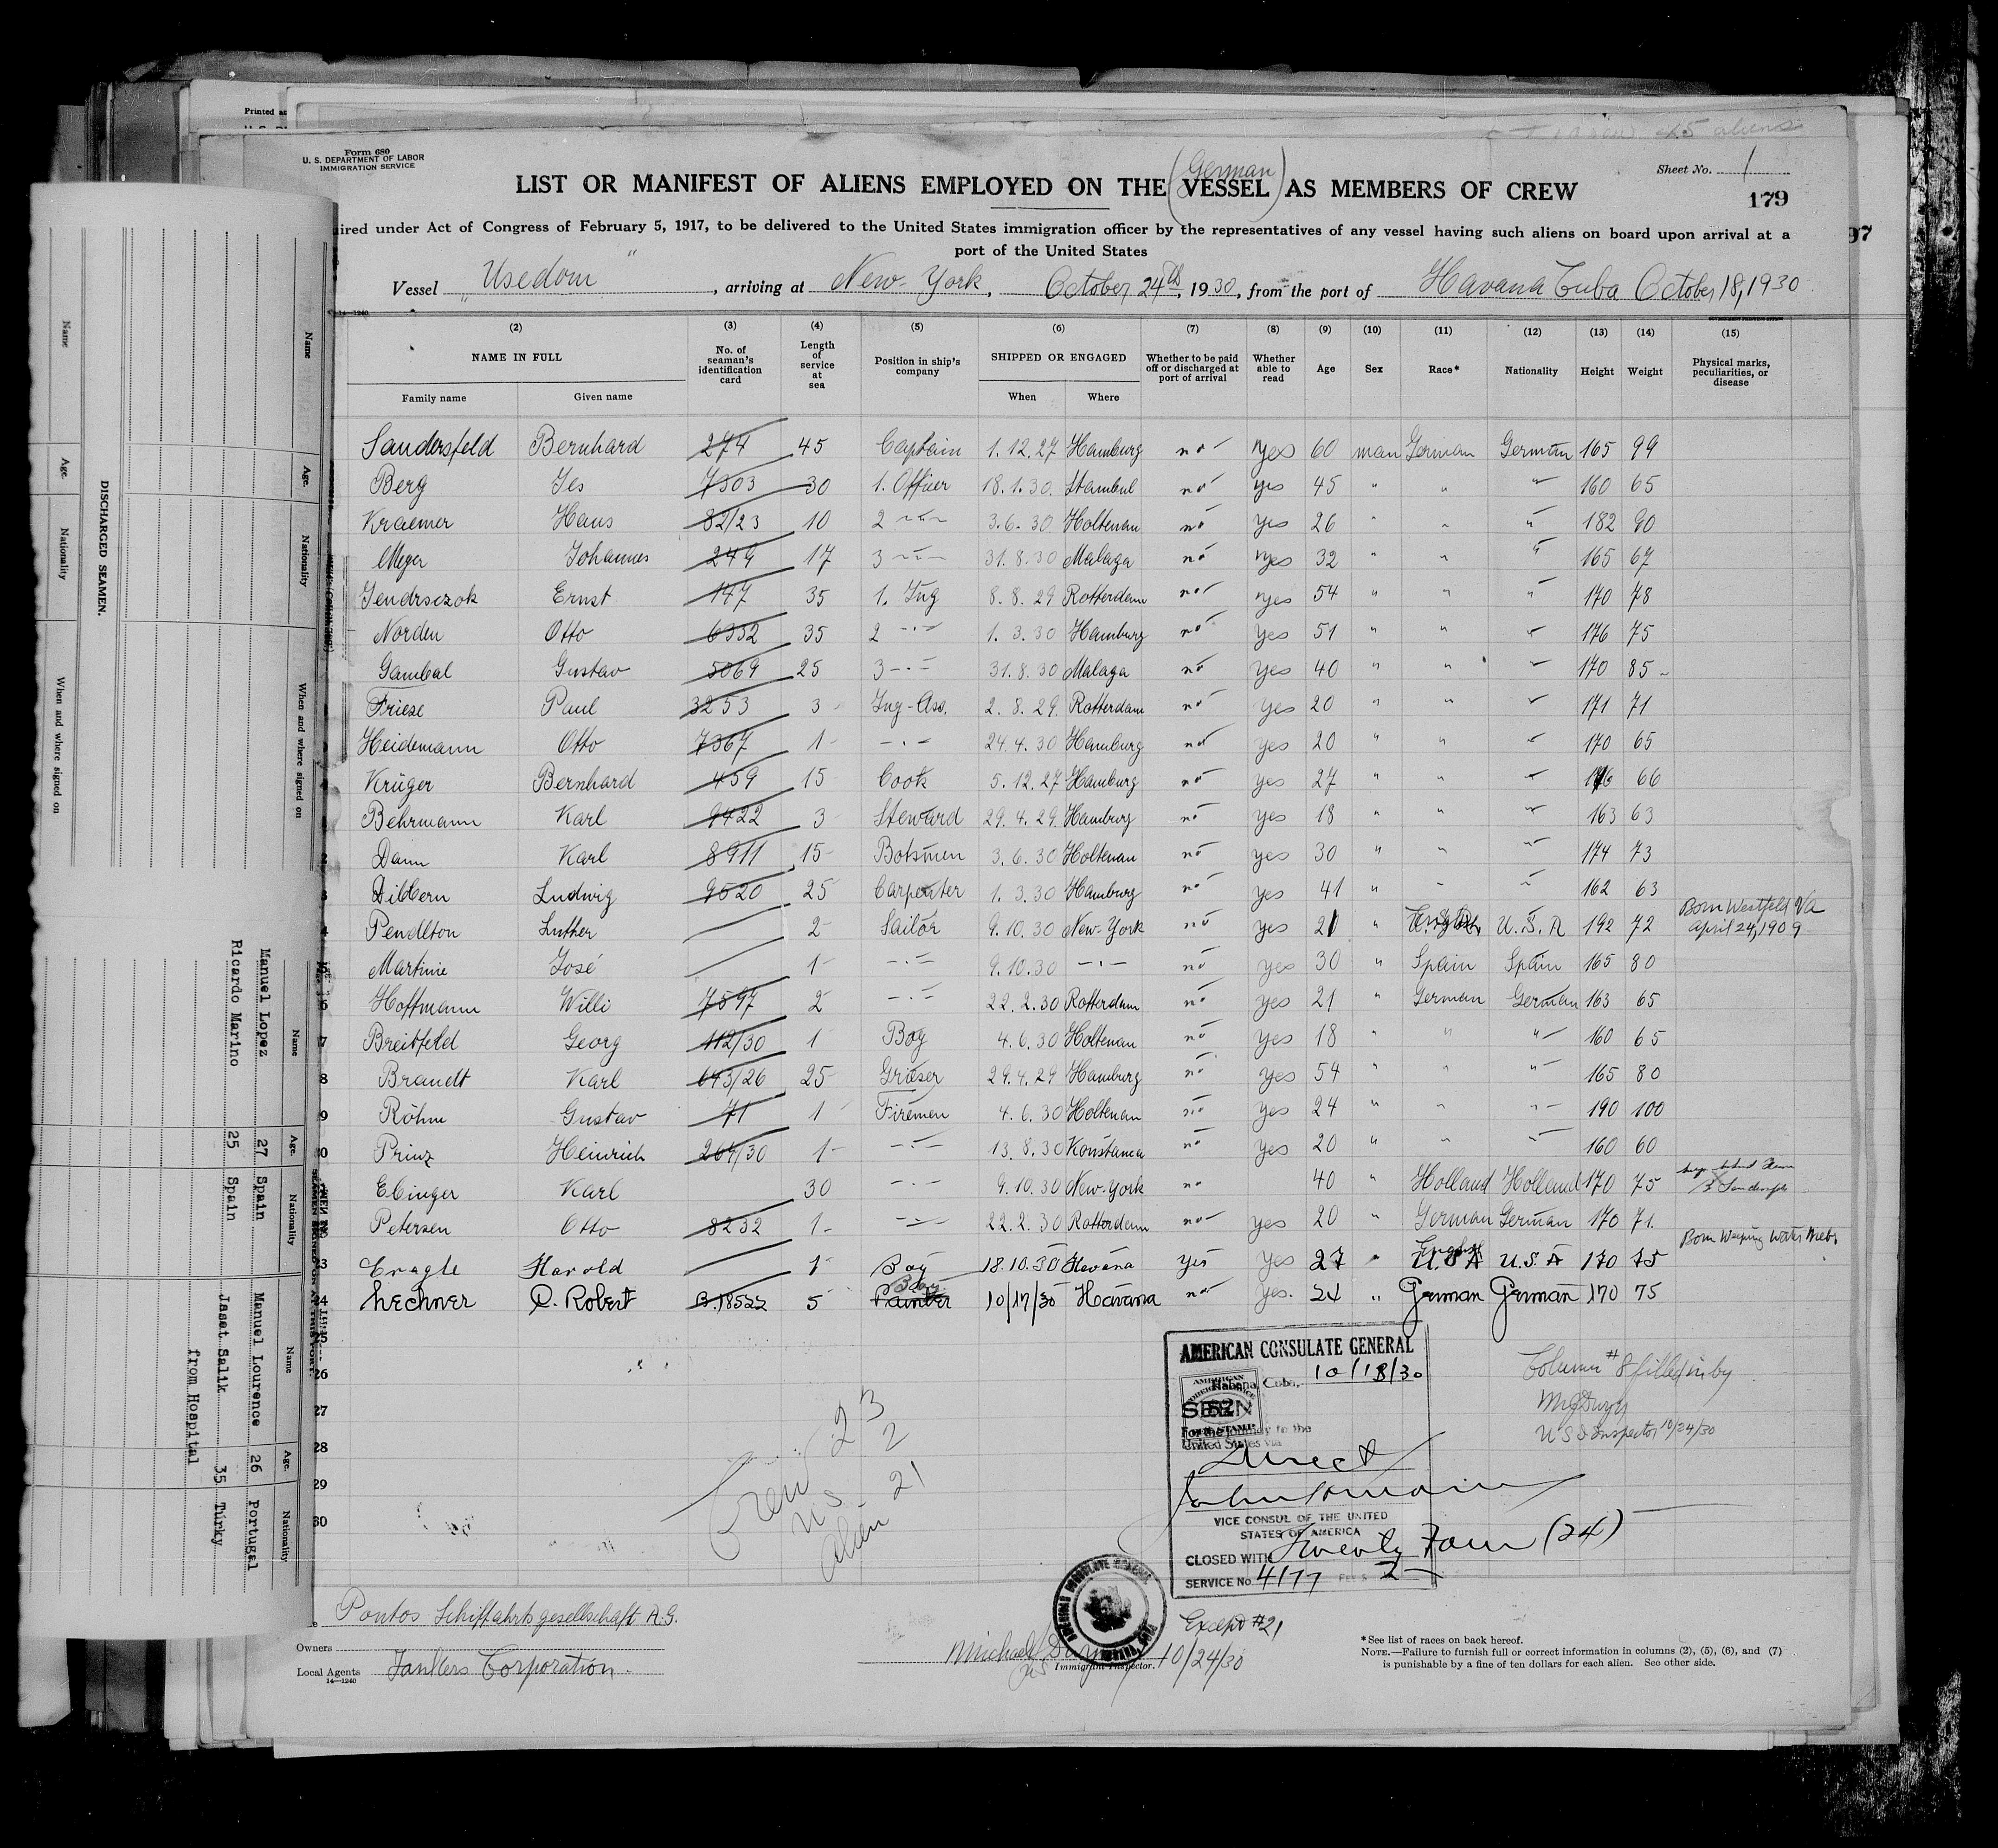 Printed at
Form 680
U. S. DEPARTMENT OF LABOR
IMMIGRATION SERVICE
45 aliens
Sheet No. 1
(German)
LIST OR MANIFEST OF ALIENS EMPLOYED ON THE VESSEL AS MEMBERS OF CREW
179
97
ired under Act of Congress of February 5, 1917, to be delivered to the United States immigration officer by the representatives of any vessel having such aliens on board upon arrival at a
port of the United States
Vessel „Usedom“, arriving at New-York, October 24th, 1930, from the port of Havana Cuba October 18, 1930
14—1240
(2) (3) (4) (5) (6) (7) (8) (9) (10) (11) (12) (13) (14) (15)
NAME IN FULL No. of seaman's identification card Length of service at sea Position in ship's company SHIPPED OR ENGAGED Whether to be paid off or discharged at port of arrival Whether able to read Age Sex Race* Nationality Height Weight Physical marks, peculiarities, or disease
Family name Given name When Where
Sandersfeld Bernhard 274 45 Captain 1.12.27 Hamburg no yes 60 man German German 165 99
Berg Jes 7303 30 1. Officer 18.1.30. Stambul no yes 45 " " " 160 65
Kraemer Hans 82/23 10 2 -"- 3.6.30 Holtenau no yes 26 " " " 182 90
Meyer Johannes 249 17 3 -"- 31.8.30 Malaga no yes 32 " " " 165 67
Jendrsczok Ernst 147 35 1. Ing 8.8.29 Rotterdam no yes 54 " " " 170 78
Norden Otto 6352 35 2 -"- 1.3.30 Hamburg no yes 51 " " " 176 75
Gambal Gustav 5069 25 3 -"- 31.8.30 Malaga no yes 40 " " " 170 85
Friese Paul 3253 3 Ing-Ass. 2.8.29. Rotterdam no yes 20 " " " 171 71
Heidemann Otto 7367 1 -"- 24.4.30 Hamburg no yes 20 " " " 170 65
Krüger Bernhard 459 15 Cook 5.12.27 Hamburg no yes 27 " " " 176 66
Behrmann Karl 9422 3 Steward 29.4.29. Hamburg no yes 18 " " " 163 63
2 Dann Karl 8911 15 Botsmen 3.6.30 Holtenau no yes 30 " " " 174 73
3 Dibbern Ludwig 9520 25 Carpenter 1.3.30 Hamburg no yes 41 " " " 162 63
4 Pendlton Luther 2 Sailor 9.10.30 New-York no yes 21 " English U.S.A 192 72 Born Westfield Va April 24, 1909
5 Martinie José 1 -"- 9.10.30 -"- no yes 30 " Spain Spain 165 80
6 Hoffmann Willi 7597 2 -"- 22.2.30 Rotterdam no yes 21 " German German 163 65
7 Breitfeld Georg 112/30 1 Boy 4.6.30 Holtenau no yes 18 " " " 160 65
8 Brandt Karl 643/26 25 Gräser 29.4.29 Hamburg no yes 54 " " " 165 80
9 Röhm Gustav 71 1 Firemen 4.6.30 Holtenau no yes 24 " " " 190 100
20 Prinz Heinrich 264/30 1 -"- 13.8.30 Konstanca no yes 20 " " " 160 60
Ebinger Karl 30 -"- 9.10.30 New-York no 40 " Holland Holland 170 75
Petersen Otto 8232 1 -"- 22.2.30 Rotterdam no yes 20 " German German 170 71.
23 Cragle Harold 1 Boy 18.10.30 Havana yes yes 27 " U.S.A English U.S.A 170 75 Born Weeping Water Nebr.
24 Lechner O. Robert B.18522 5 Painter Boy 10/17/30 Havana no yes. 24 " German German 170 75
25
26
27
28
29
30
Crew 23
US 2
alien 21
AMERICAN CONSULATE GENERAL
Habana, Cuba, 10/18/30
SEEN
For the journey to the
United States via
Direct
VICE CONSUL OF THE UNITED
STATES OF AMERICA
CLOSED WITH Twenty Four (24)
SERVICE No 4177 FEE $ 2
Column #8 filled in by
US I Inspector 10/24/30
Pontos Schiffahrtsgesellschaft A.G.
Owners
Local Agents
14—1240
Corporation.
Except #21
Michael
Immigrant Inspector. 10/24/30
*See list of races on back hereof.
NOTE.—Failure to furnish full or correct information in columns (2), (5), (6), and (7)
is punishable by a fine of ten dollars for each alien. See other side.
DISCHARGED SEAMEN.
Name Age. Nationality When and where signed on
Name Age. Nationality When and where signed on
Name Age. Nationality
Manuel Lopez 27 Spain
Ricardo Marino 25 Spain
Name Age. Nationality
Manuel Lourence 26 Portugal
Jaset Salik 35 Türky
from Hospital